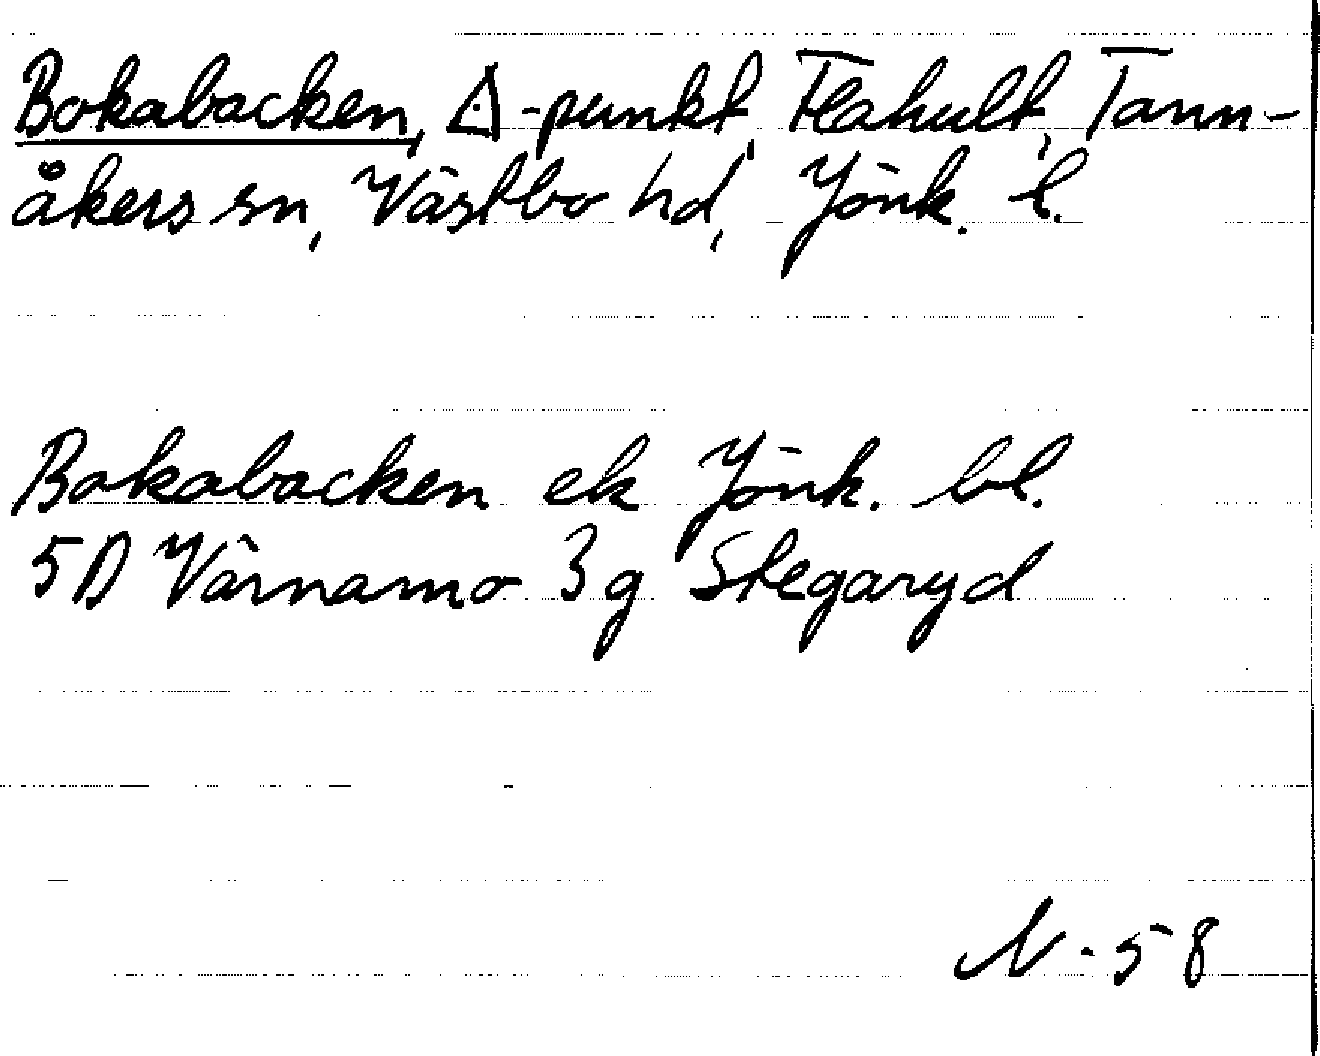 Bokabacken, △-punkt, Flahult, Tann-
åkers sn, Västbo hd, Jönk. l.
Bokabacken ek Jönk. bl.
5D Värnamo 3g Skegaryd
N-58